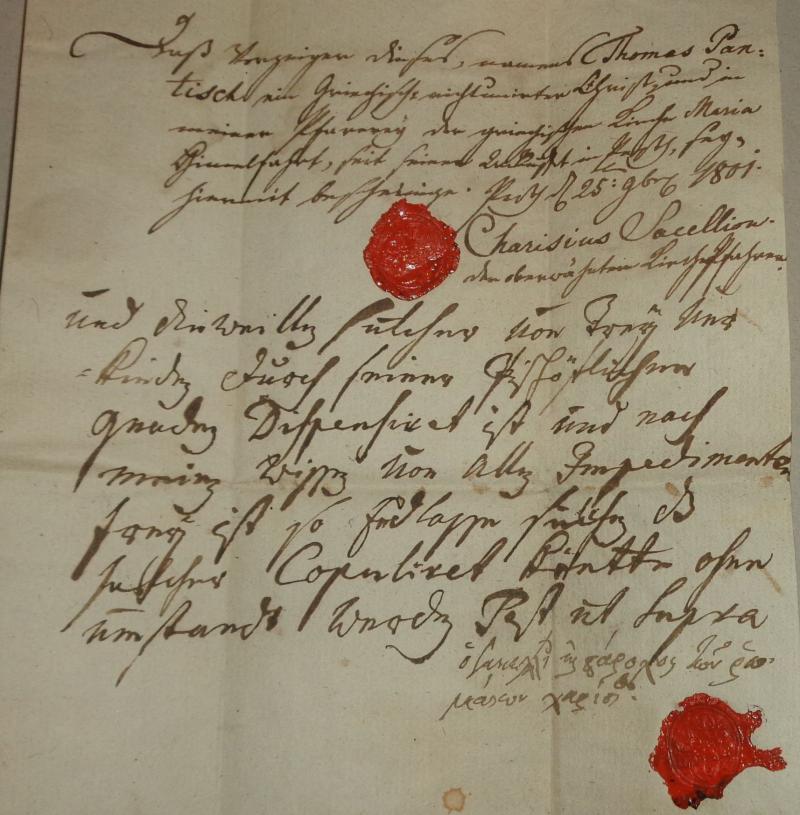 Daß Vorzeiger dieses, namens Thomas Pan=
tisch ein Griechisch nichtunirter Christ, und in
meiner Pfarrey der griechischen Kirche Maria
Himmelfahrt, seit seiner Ankunft in Pesth, sey,
hiermit bescheinige. Pesth d 25: 9bris 1801.
Charisius Sacellion
der oberwähnten Kirche Pfahrer.
und dieweillen sulcher von Drey Ver
=kinden Durch seiner Pischöflichen
gnaden Dispensiret ist und nach
meinen Wissen von allen Impedimenten
freÿ ist so Endlasse sulchen
sulcher Copuliret könte ohne
umstandt werden Pest ut supra
ὁ πάροχος τῶν